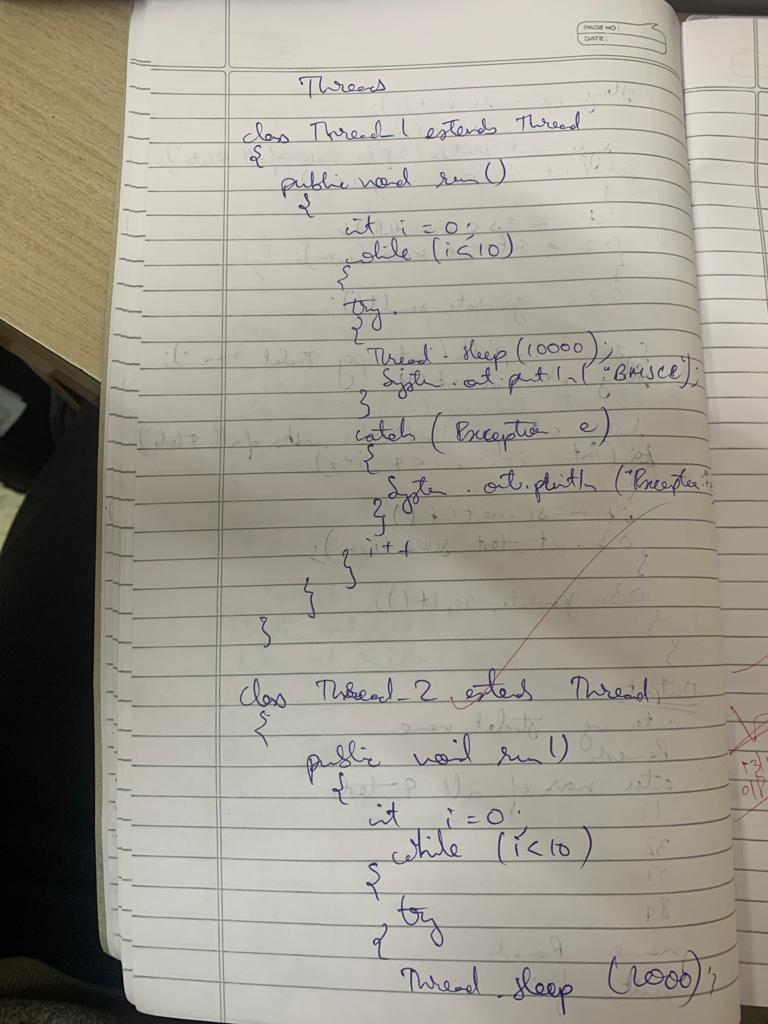 PAGE NO:
DATE:
Threads
class Thread-1 extends Thread
{
public void run()
{
int i = 0;
while (i<10)
{
try
{
Thread.sleep(10000);
System.out.println("BMSCE");
}
catch (Exception e)
{
System.out.println("Exception"
}
i++
}
}
}
class Thread-2 extends Thread
{
public void run()
{
int i = 0;
while (i<10)
{
try
{
Thread.sleep (2000);